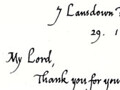 7 Lansdown
29. 1
My Lord,
Thank you for you